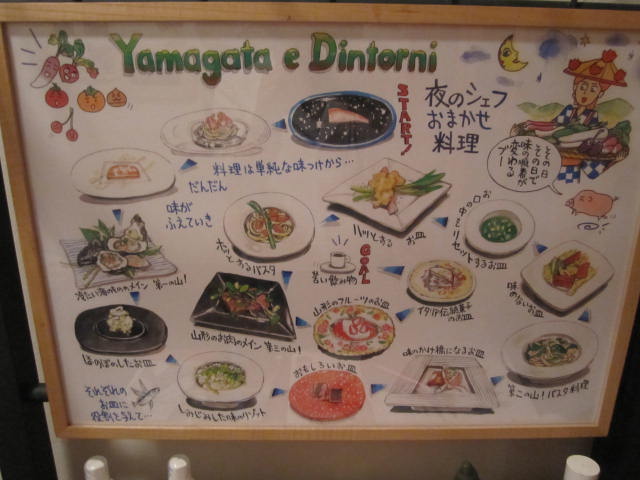 Yamagata e Dintorni
START!
夜のシェフ
おまかせ
料理
その日
その日で
味の順番が
変わる
ブー
料理は単純な味つけから…
だんだん
味が
ふえていき
ハッとする お皿
お口の中をリセットするお皿
ホッとするパスタ
GOAL
苦い飲み物
冷たい海のもののメイン 第一の山!
イタリア伝統菓子
のお皿
味のないお皿
山形のお肉のメイン 第三の山!
山形のフルーツのお皿
ほのぼのしたお皿
味のかけ橋になるお皿
第二の山!パスタ料理
おもしろいお皿
それぞれの
お皿に
役割を与えて…
しみじみした味のリゾット